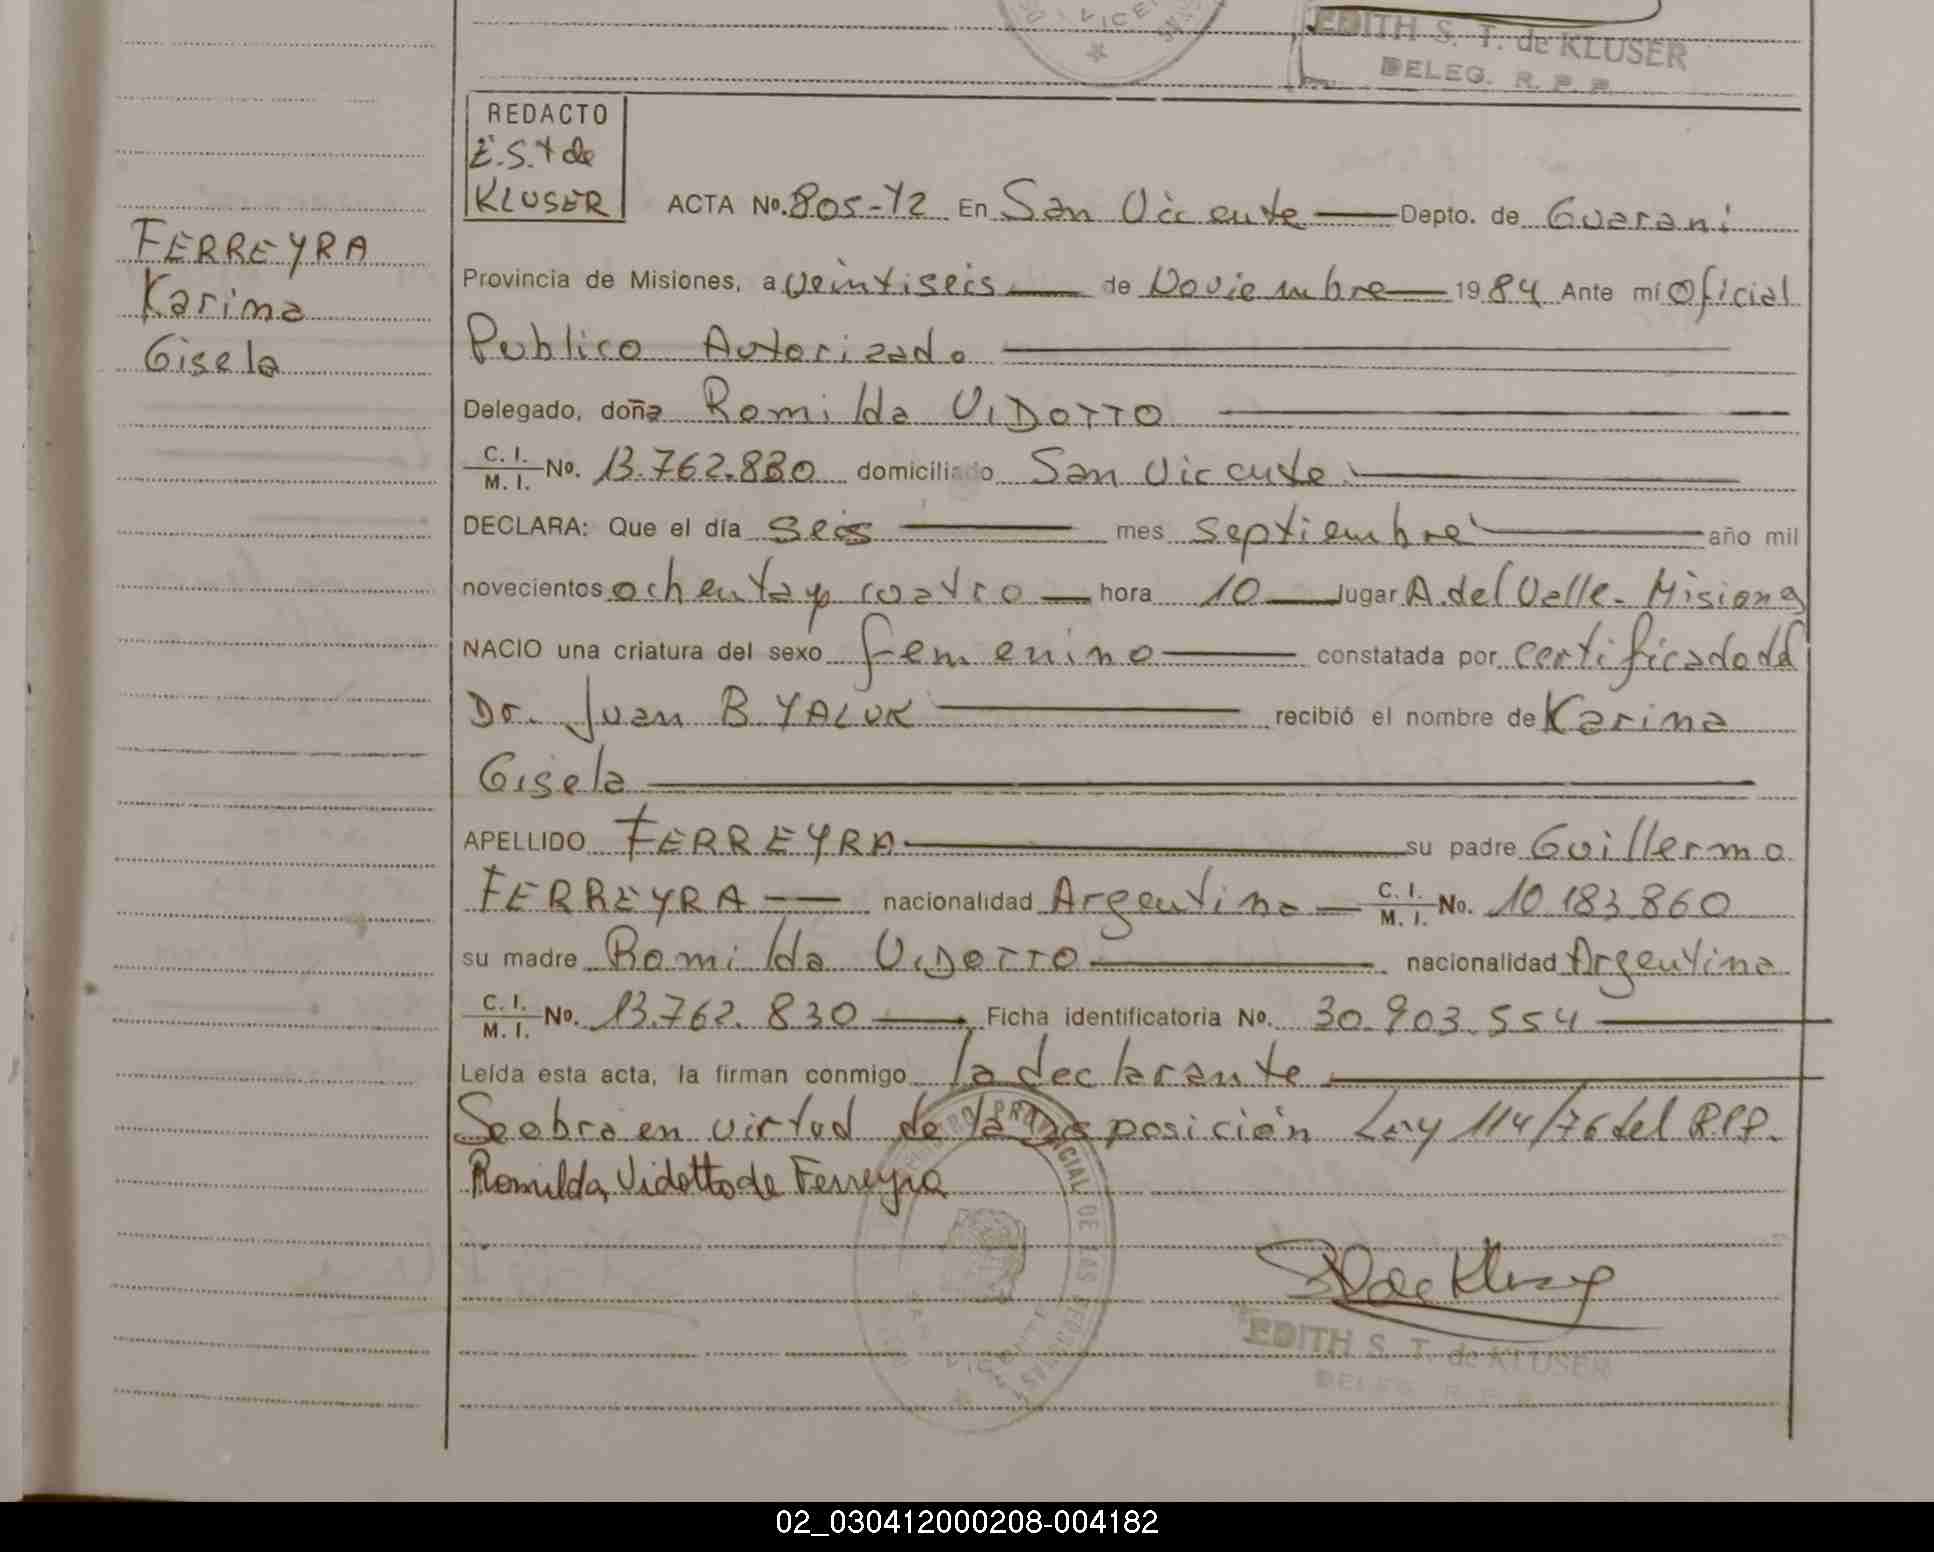 EDITH S. T. de KLUSER
DELEG. R. P. P.
REDACTO
E.S.T de
KLUSER
ACTA No. 805-T2 En San Vicente Depto. de Guarani
FERREYRA
Karina
Gisela
Provincia de Misiones, a veintiseis de Noviembre 1984 Ante mí Oficial
Publico Autorizado
Delegado, doña Romilda VIDOTTO
C. I.
M. I. No. 13.762.830 domiciliado San Vicente
DECLARA: Que el día seis mes septiembre año mil
novecientos ochenta y cuatro hora 10 lugar A. del Valle - Misiones
NACIO una criatura del sexo femenino constatada por certificado del
Dr. Juan B YALUK recibió el nombre de Karina
Gisela
APELLIDO FERREYRA su padre Guillermo
FERREYRA nacionalidad Argentina C. I.
M. I. No. 10.183.860
su madre Romilda VIDOTTO nacionalidad Argentina
C. I.
M. I. No. 13.762.830 Ficha identificatoria No. 30.903.554
Leída esta acta, la firman conmigo la declarante
Se obra en virtud de la Disposición Ley 114/76 del R.P.P.
Romilda Vidotto de Ferreyra
EDITH S. T. de KLUSER
DELEG. R. P. P.
02_030412000208-004182